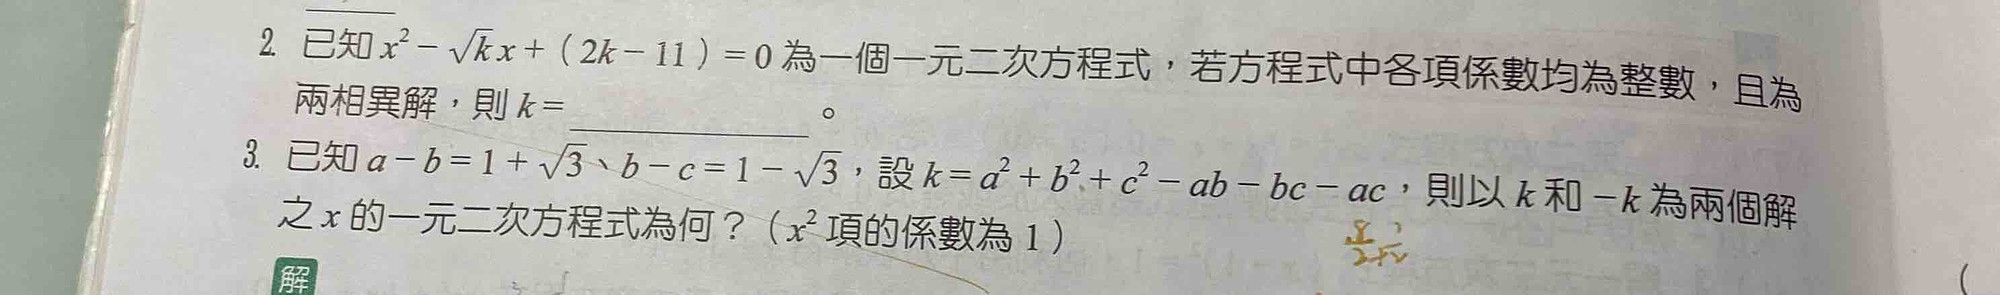 2. 已知 x² − √k x + ( 2k − 11 ) = 0 為一個一元二次方程式，若方程式中各項係數均為整數，且為
兩相異解，則 k = ________ 。
3. 已知 a − b = 1 + √3、b − c = 1 − √3，設 k = a² + b² + c² − ab − bc − ac，則以 k 和 −k 為兩個解
之 x 的一元二次方程式為何？（x² 項的係數為 1）
解